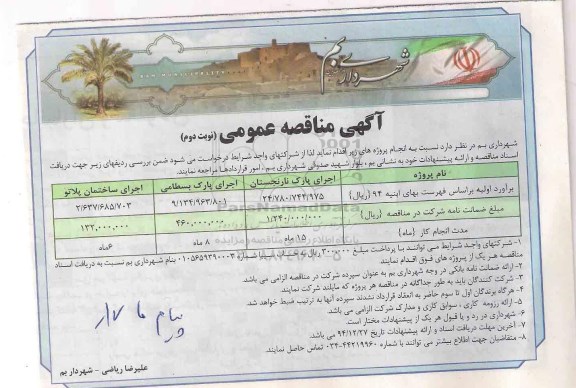 شهرداری بم
آگهی مناقصه عمومی (نوبت دوم)
شهرداری بم در نظر دارد نسبت به انجام پروژه های زیر اقدام نماید لذا از شرکتهای واجد شرایط درخواست می شود ضمن بررسی ردیفهای زیر جهت دریافت
اسناد مناقصه و ارائه پیشنهادات خود به نشانی بم ، بلوار شهید صدوقی شهرداری بم ، امور قراردادها مراجعه نمایند.
نام پروژه اجرای پارک نارنجستان اجرای پارک بسطامی اجرای ساختمان پلاتو
برآورد اولیه براساس فهرست بهای ابنیه ۹۴ (ریال) ۲۴/۷۸۰/۷۴۴/۹۷۵ ۹/۱۳۴/۹۶۳/۸۰۱ ۲/۶۳۷/۶۸۵/۷۰۳
مبلغ ضمانت نامه شرکت در مناقصه (ریال) ۱/۲۴۰/۰۰۰/۰۰۰ ۴۶۰,۰۰۰,۰۰۰ ۱۳۲,۰۰۰,۰۰۰
مدت انجام کار (ماه) ۱۵ ماه ۸ ماه ۶ماه
۱- شرکتهای واجد شرایط می توانند با پرداخت مبلغ ۳۰۰,۰۰۰ ریال به حساب سیبا شماره ۰۱۰۵۶۵۹۳۹۰۰۳ بنام شهرداری بم نسبت به دریافت اسناد
مناقصه هر یک از پروژه های فوق اقدام نمایند
۲- ارائه ضمانت نامه بانکی در وجه شهرداری بم به عنوان سپرده شرکت در مناقصه الزامی می باشد.
۳- شرکت کنندگان باید به طور جداگانه در مناقصه هر پروژه که مایلند شرکت نمایند
۴- هرگاه برندگان اول تا سوم حاضر به انعقاد قرارداد نشدند سپرده آنها به ترتیب ضبط خواهد شد.
۵- ارائه رزومه کاری ، سوابق کاری و مدارک شرکت الزامی می باشد.
۶- شهرداری در رد و یا قبول هر یک از پیشنهادات مختار است.
۷- آخرین مهلت دریافت اسناد و ارائه پیشنهادات تاریخ ۹۴/۱۲/۲۷ می باشد.
۸- متقاضیان جهت اطلاع بیشتر می توانند با شماره ۴۴۲۱۹۹۶۰-۰۳۴ تماس حاصل نمایند.
علیرضا ریاضی - شهردار بم
پیام ما ۱۷/